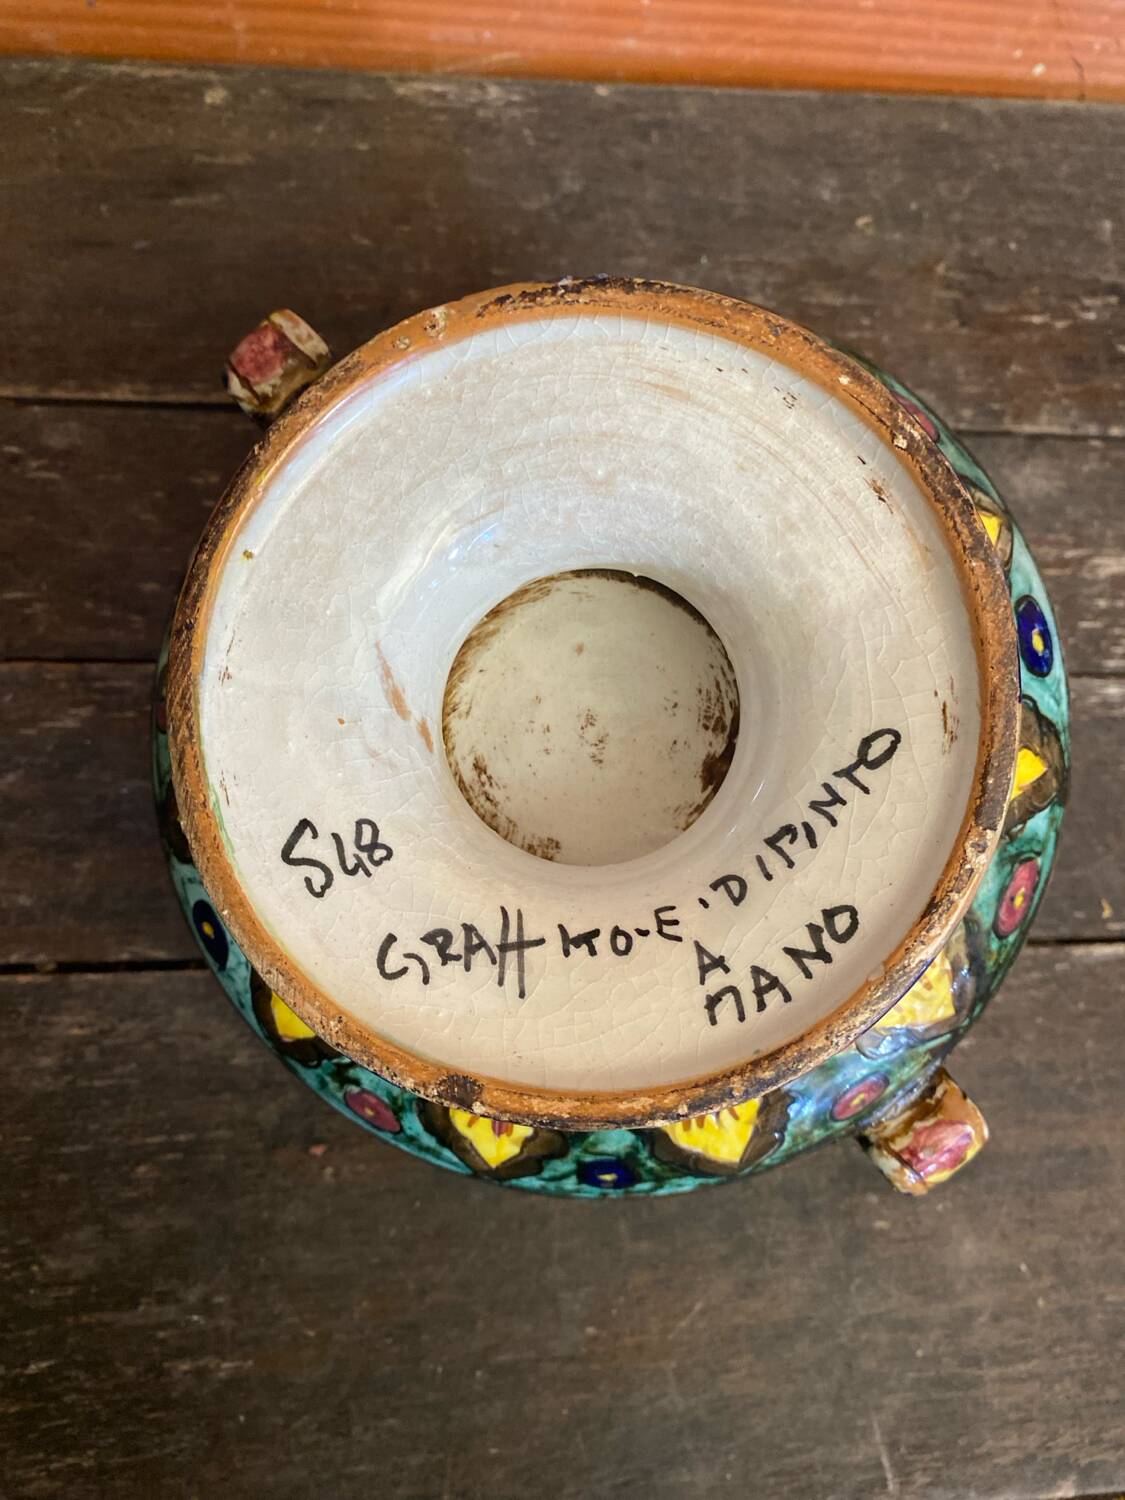 S48
GRAFFITO-E' DIPINTO
A
MANO